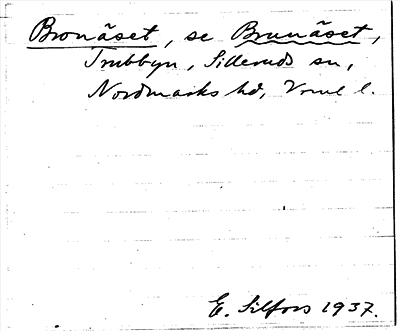 Bronäset, se Brunäset,
Trubbyn, Silleruds sn,
Nordmarks hd, Vrml l.
E. Silfors 1937.